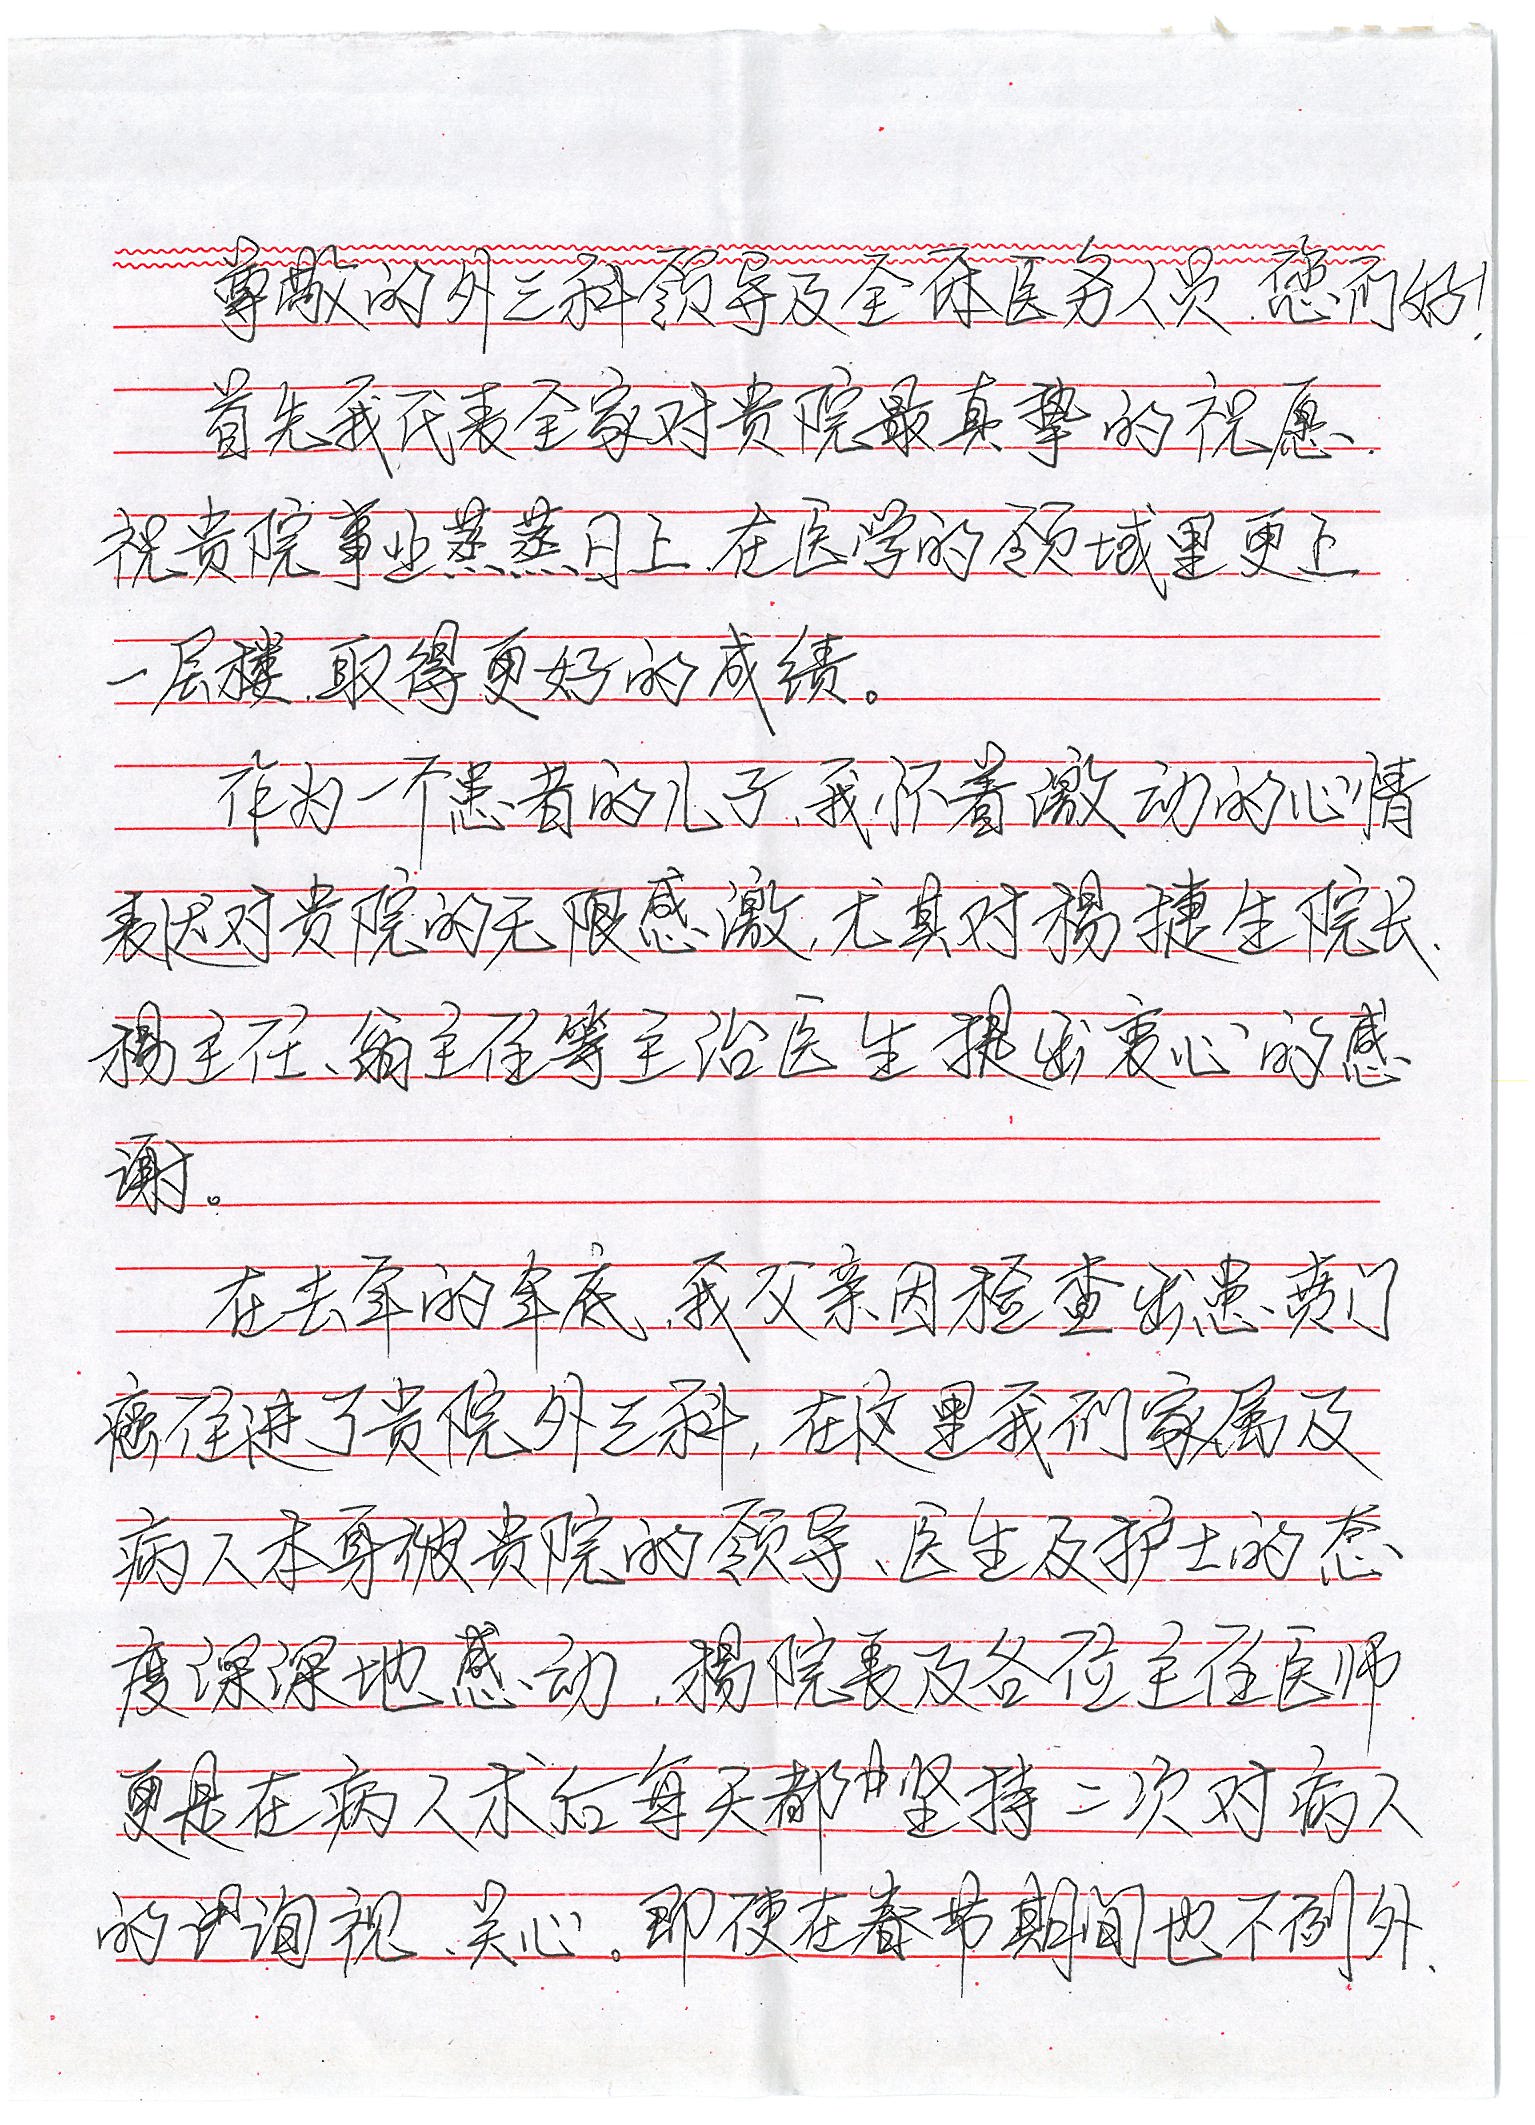 尊敬的外三科领导及全体医务人员、您们好！
首先我代表全家对贵院最真挚的祝愿、
祝贵院事业蒸蒸日上、在医学的领域里更上
一层楼、取得更好的成绩。
作为一个患者的儿子、我怀着激动的心情
表达对贵院的无限感激，尤其对杨捷生院长、
杨主任、翁主任等主治医生提出衷心的感
谢。
在去年的年底、我父亲因检查出患贲门
癌住进了贵院外三科，在这里我们家属及
病人本身被贵院的领导、医生及护士的态
度深深地感动、杨院长及各位主任医师
更是在病人术后每天都坚持二次对病人
的询视、关心。即使在春节期间也不例外、